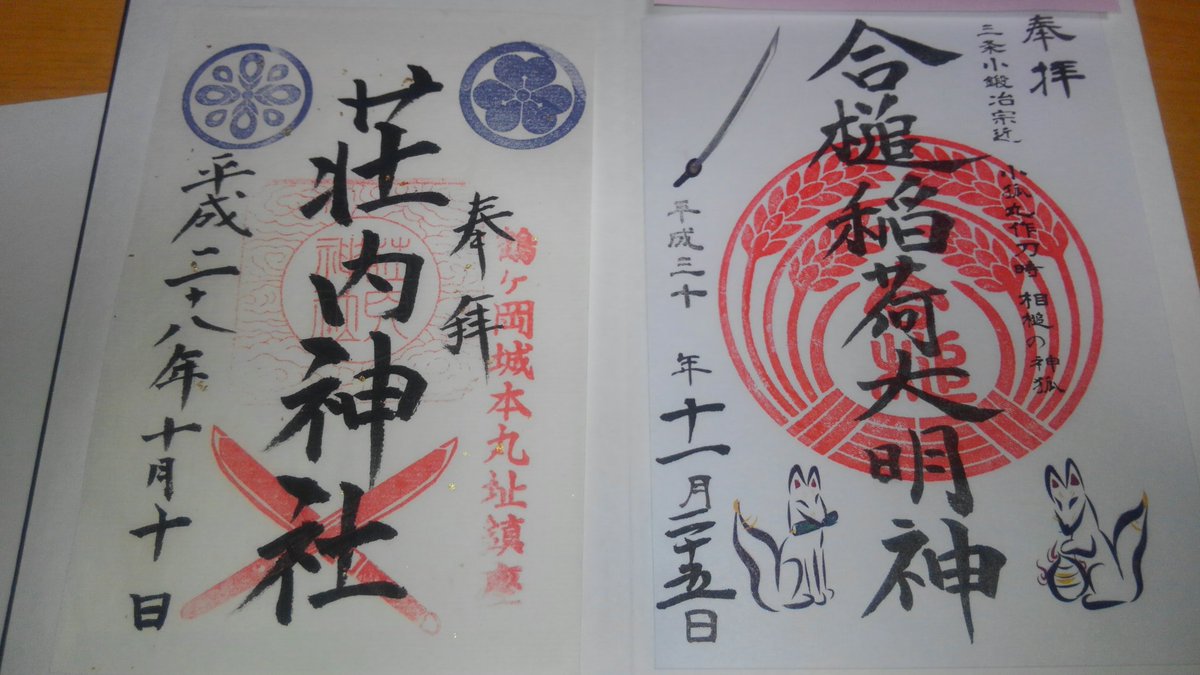 奉拝
三条小鍛冶宗近
小狐丸作刀時 相槌の神狐
合槌稲荷大明神
平成三十年十一月二十五日
鶴ヶ岡城本丸址鎮座
奉拝
荘内神社
平成二十八年十月十日